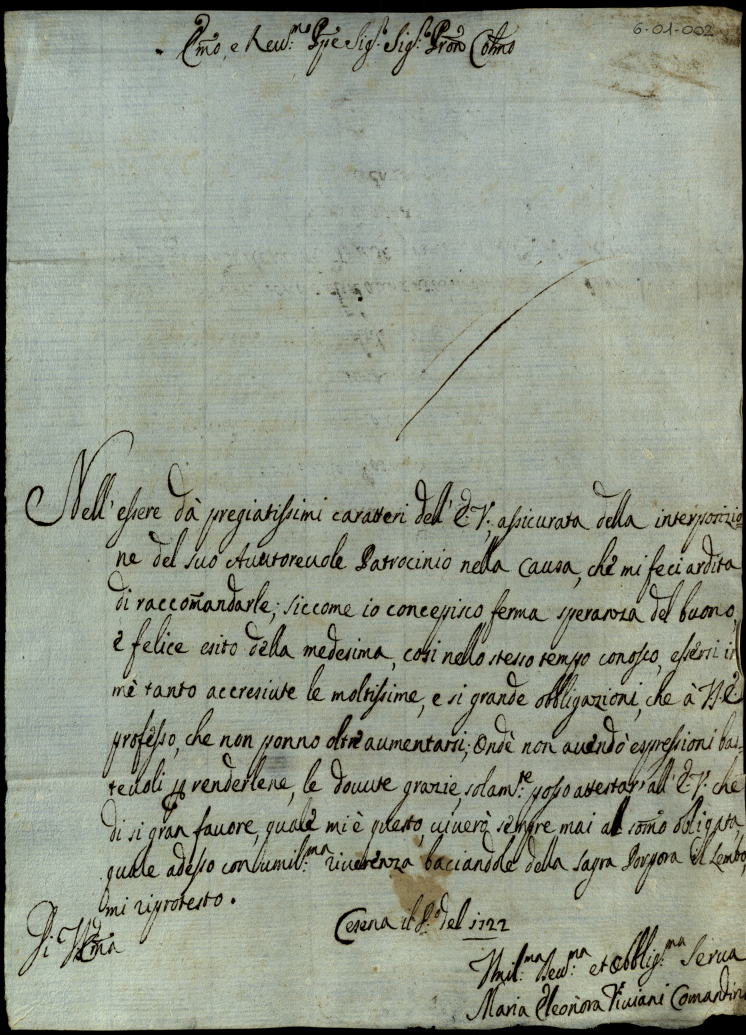 6-01-002
Emo, e Reu.mo Ppe Sig.r Sig.r Pron Colmo
Nell' essere dà pregiatissimi caratteri dell' E.V. assicurata della interposizio-
ne del suo Auutoreuole Patrocinio nella causa, che mi feci ardita
di raccomandarle; siccome io concepisco ferma speranza del buono,
e felice esito della medesima, così nello stesso tempo conosco, essersi in
mè tanto accresiute le moltissime, e si grande obbligazioni, che à V.E.
professo, che non ponno oltre aumentarsi; Onde non auendo espressioni bas-
teuoli p renderlene, le douute grazie, solam.te posso attestar all' E.V. che
di si gran fauore, quale mi è questo, viuerò sempre mai al somo obligata,
quale adesso con umil.ma riuerenza baciandole della sagra Porpora il Lembo,
mi riprotesto.
Di V. Emã
Cesena il P.o del 1722
Vmil.ma Deu.ma et Obblig.ma Serua
Maria Eleonora Viuiani Comandini